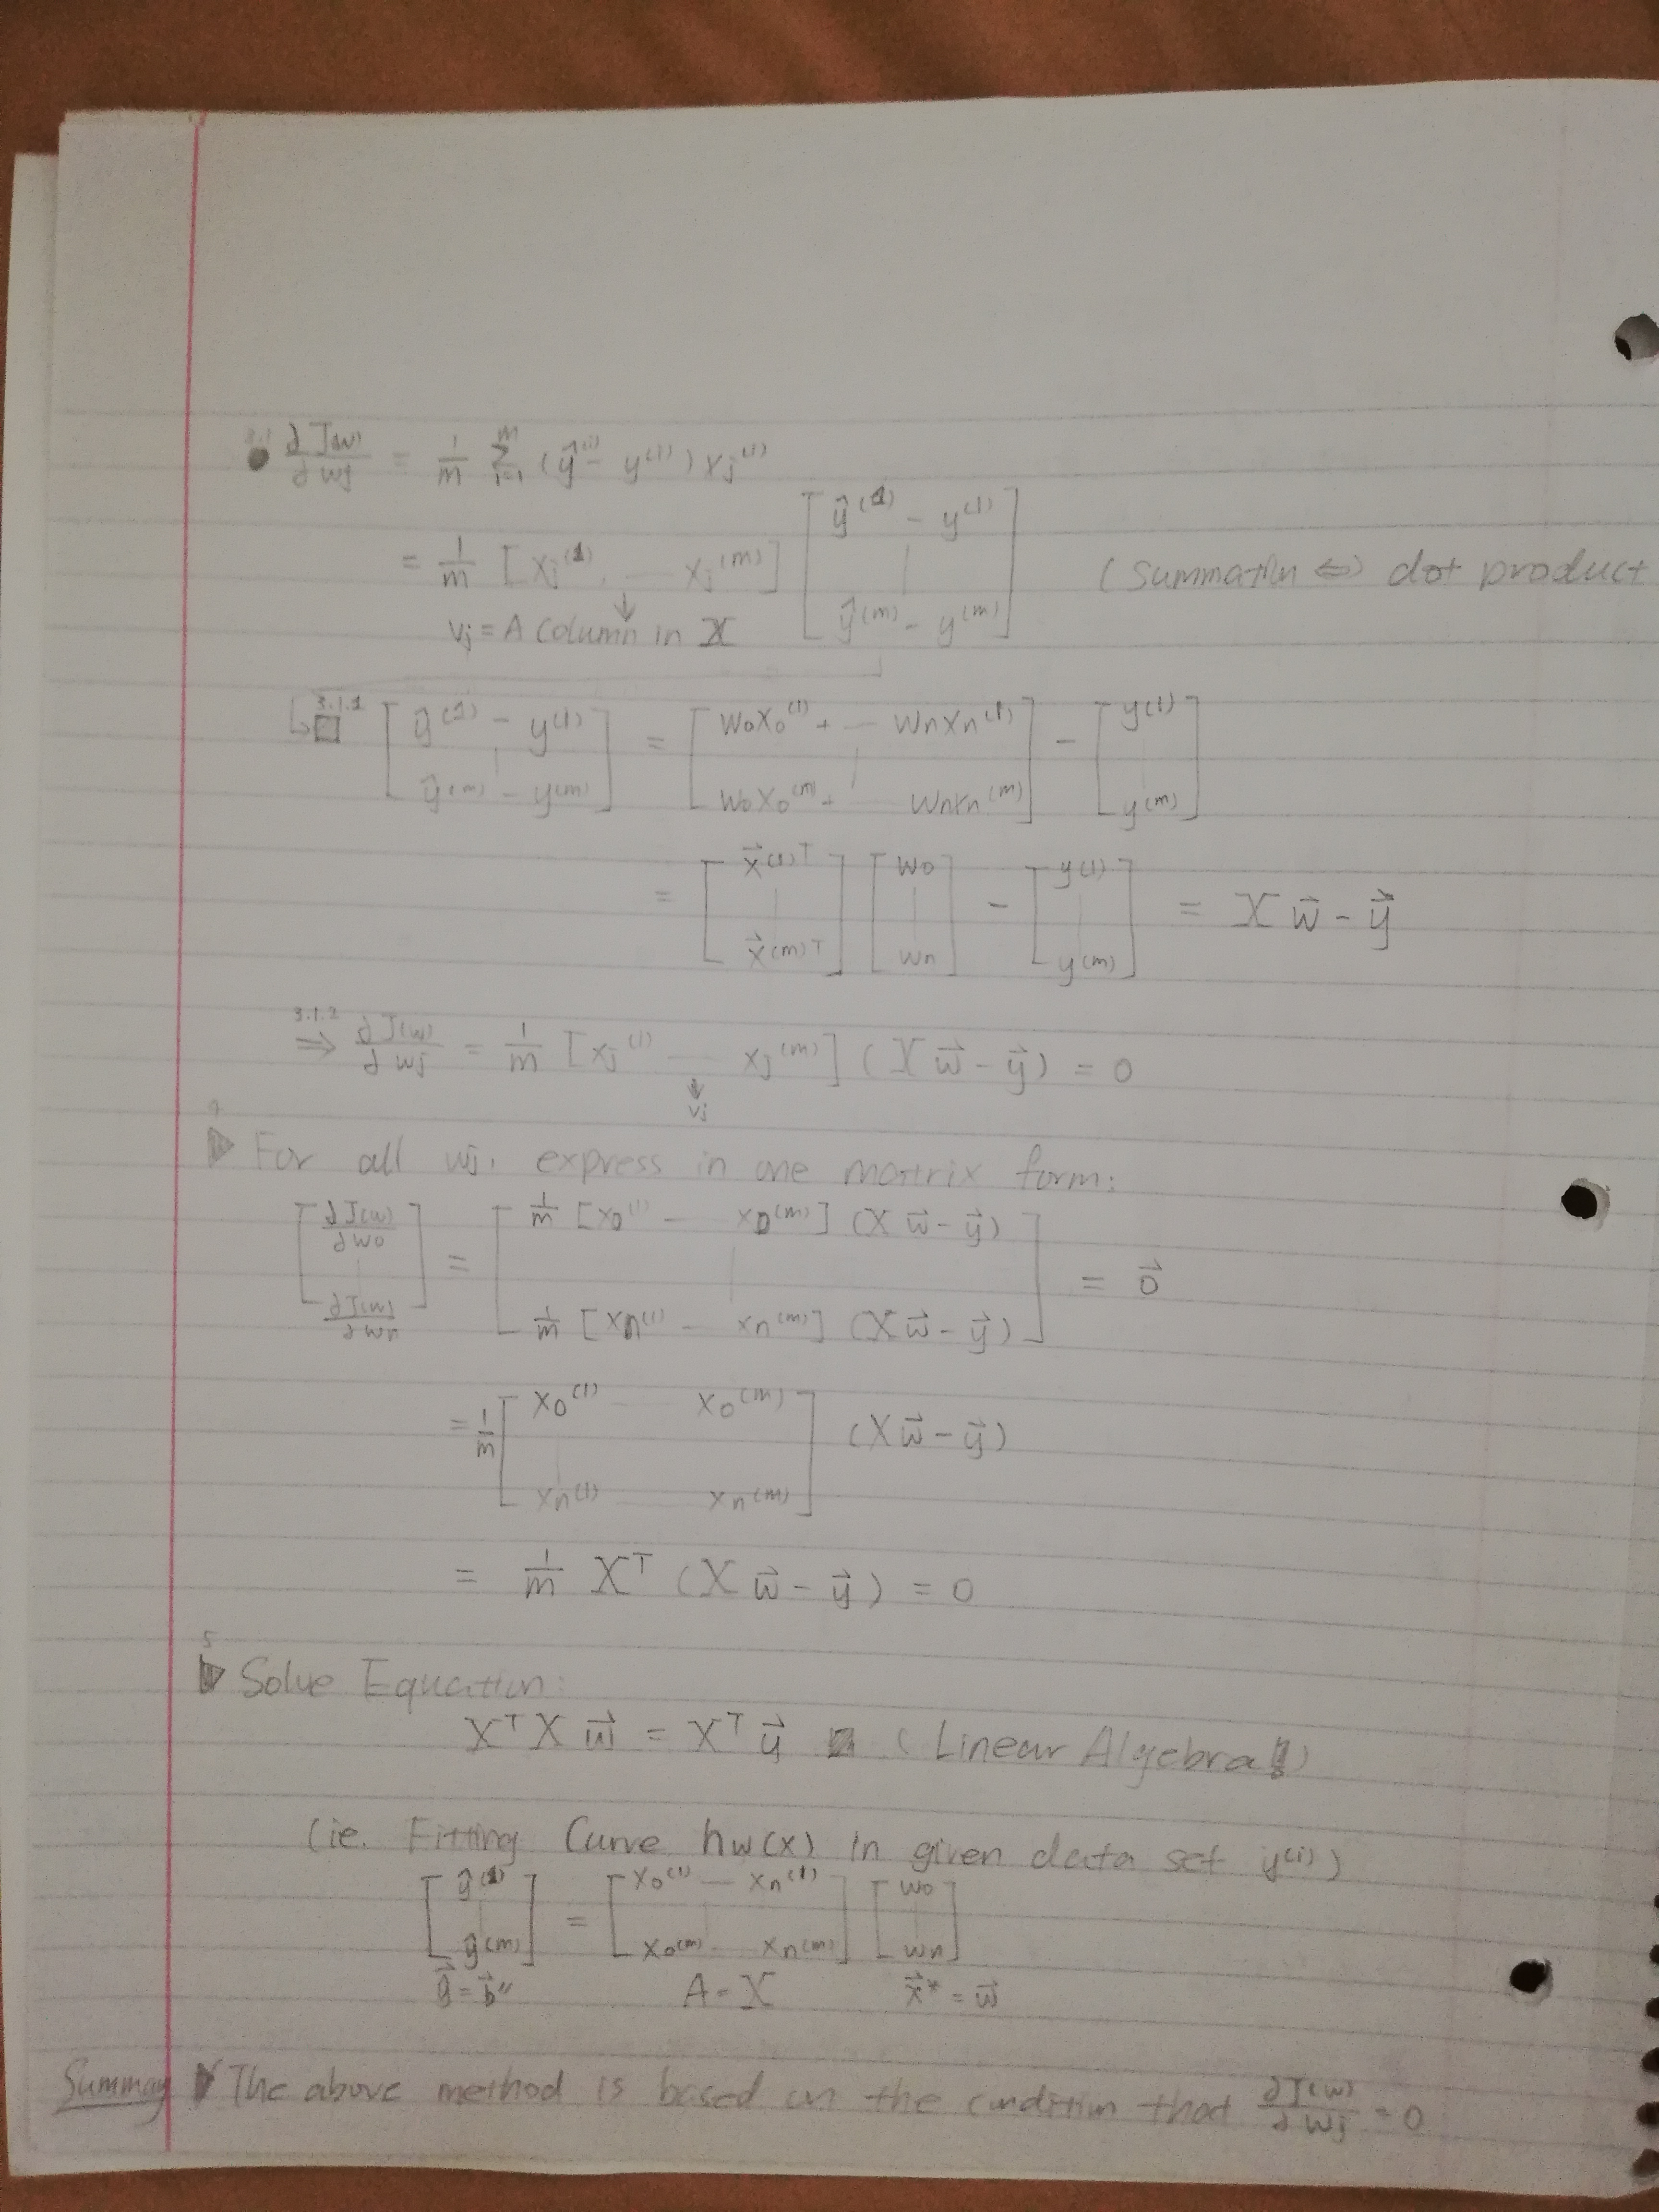 3.1 ● ∂J(w)/∂wj = 1/m Σ_{i=1}^{m} (ŷ^(i) - y^(i)) xj^(i)
= 1/m [xj^(1), — xj^(m)] [ŷ^(1) - y^(1) | ŷ^(m) - y^(m)] (summation ⇔ dot product
↓
vj = A column in X
↳ 3.1.1 □ [ŷ^(1) - y^(1) | ŷ^(m) - y^(m)] = [w0x0^(1) + — wnxn^(1) | w0x0^(m) + — wnxn^(m)] - [y^(1) | y^(m)]
= [x⃗^(1)T | x⃗^(m)T] [w0 | wn] - [y^(1) | y^(m)] = X w⃗ - y⃗
3.1.2 ⇒ ∂J(w)/∂wj = 1/m [xj^(1) — xj^(m)] (X w⃗ - y⃗) = 0
↓
vj
4 ▷ For all wj, express in one matrix form:
[∂J(w)/∂w0 | ∂J(w)/∂wn] = [1/m [x0^(1) — x0^(m)] (X w⃗ - y⃗) | 1/m [xn^(1) — xn^(m)] (X w⃗ - y⃗)] = 0⃗
= 1/m [x0^(1) — x0^(m) | xn^(1) — xn^(m)] (X w⃗ - y⃗)
= 1/m X^T (X w⃗ - y⃗) = 0
5 ▷ Solve Equation:
X^T X w⃗ = X^T y⃗ (Linear Algebra!)
(ie. Fitting Curve hw(x) in given data set y^(i))
[ŷ^(1) | ŷ^(m)] = [x0^(1) — xn^(1) | x0^(m) — xn^(m)] [w0 | wn]
y⃗ = b⃗" A = X x⃗* = w⃗
Summay The above method is based on the condition that ∂J(w)/∂wj = 0